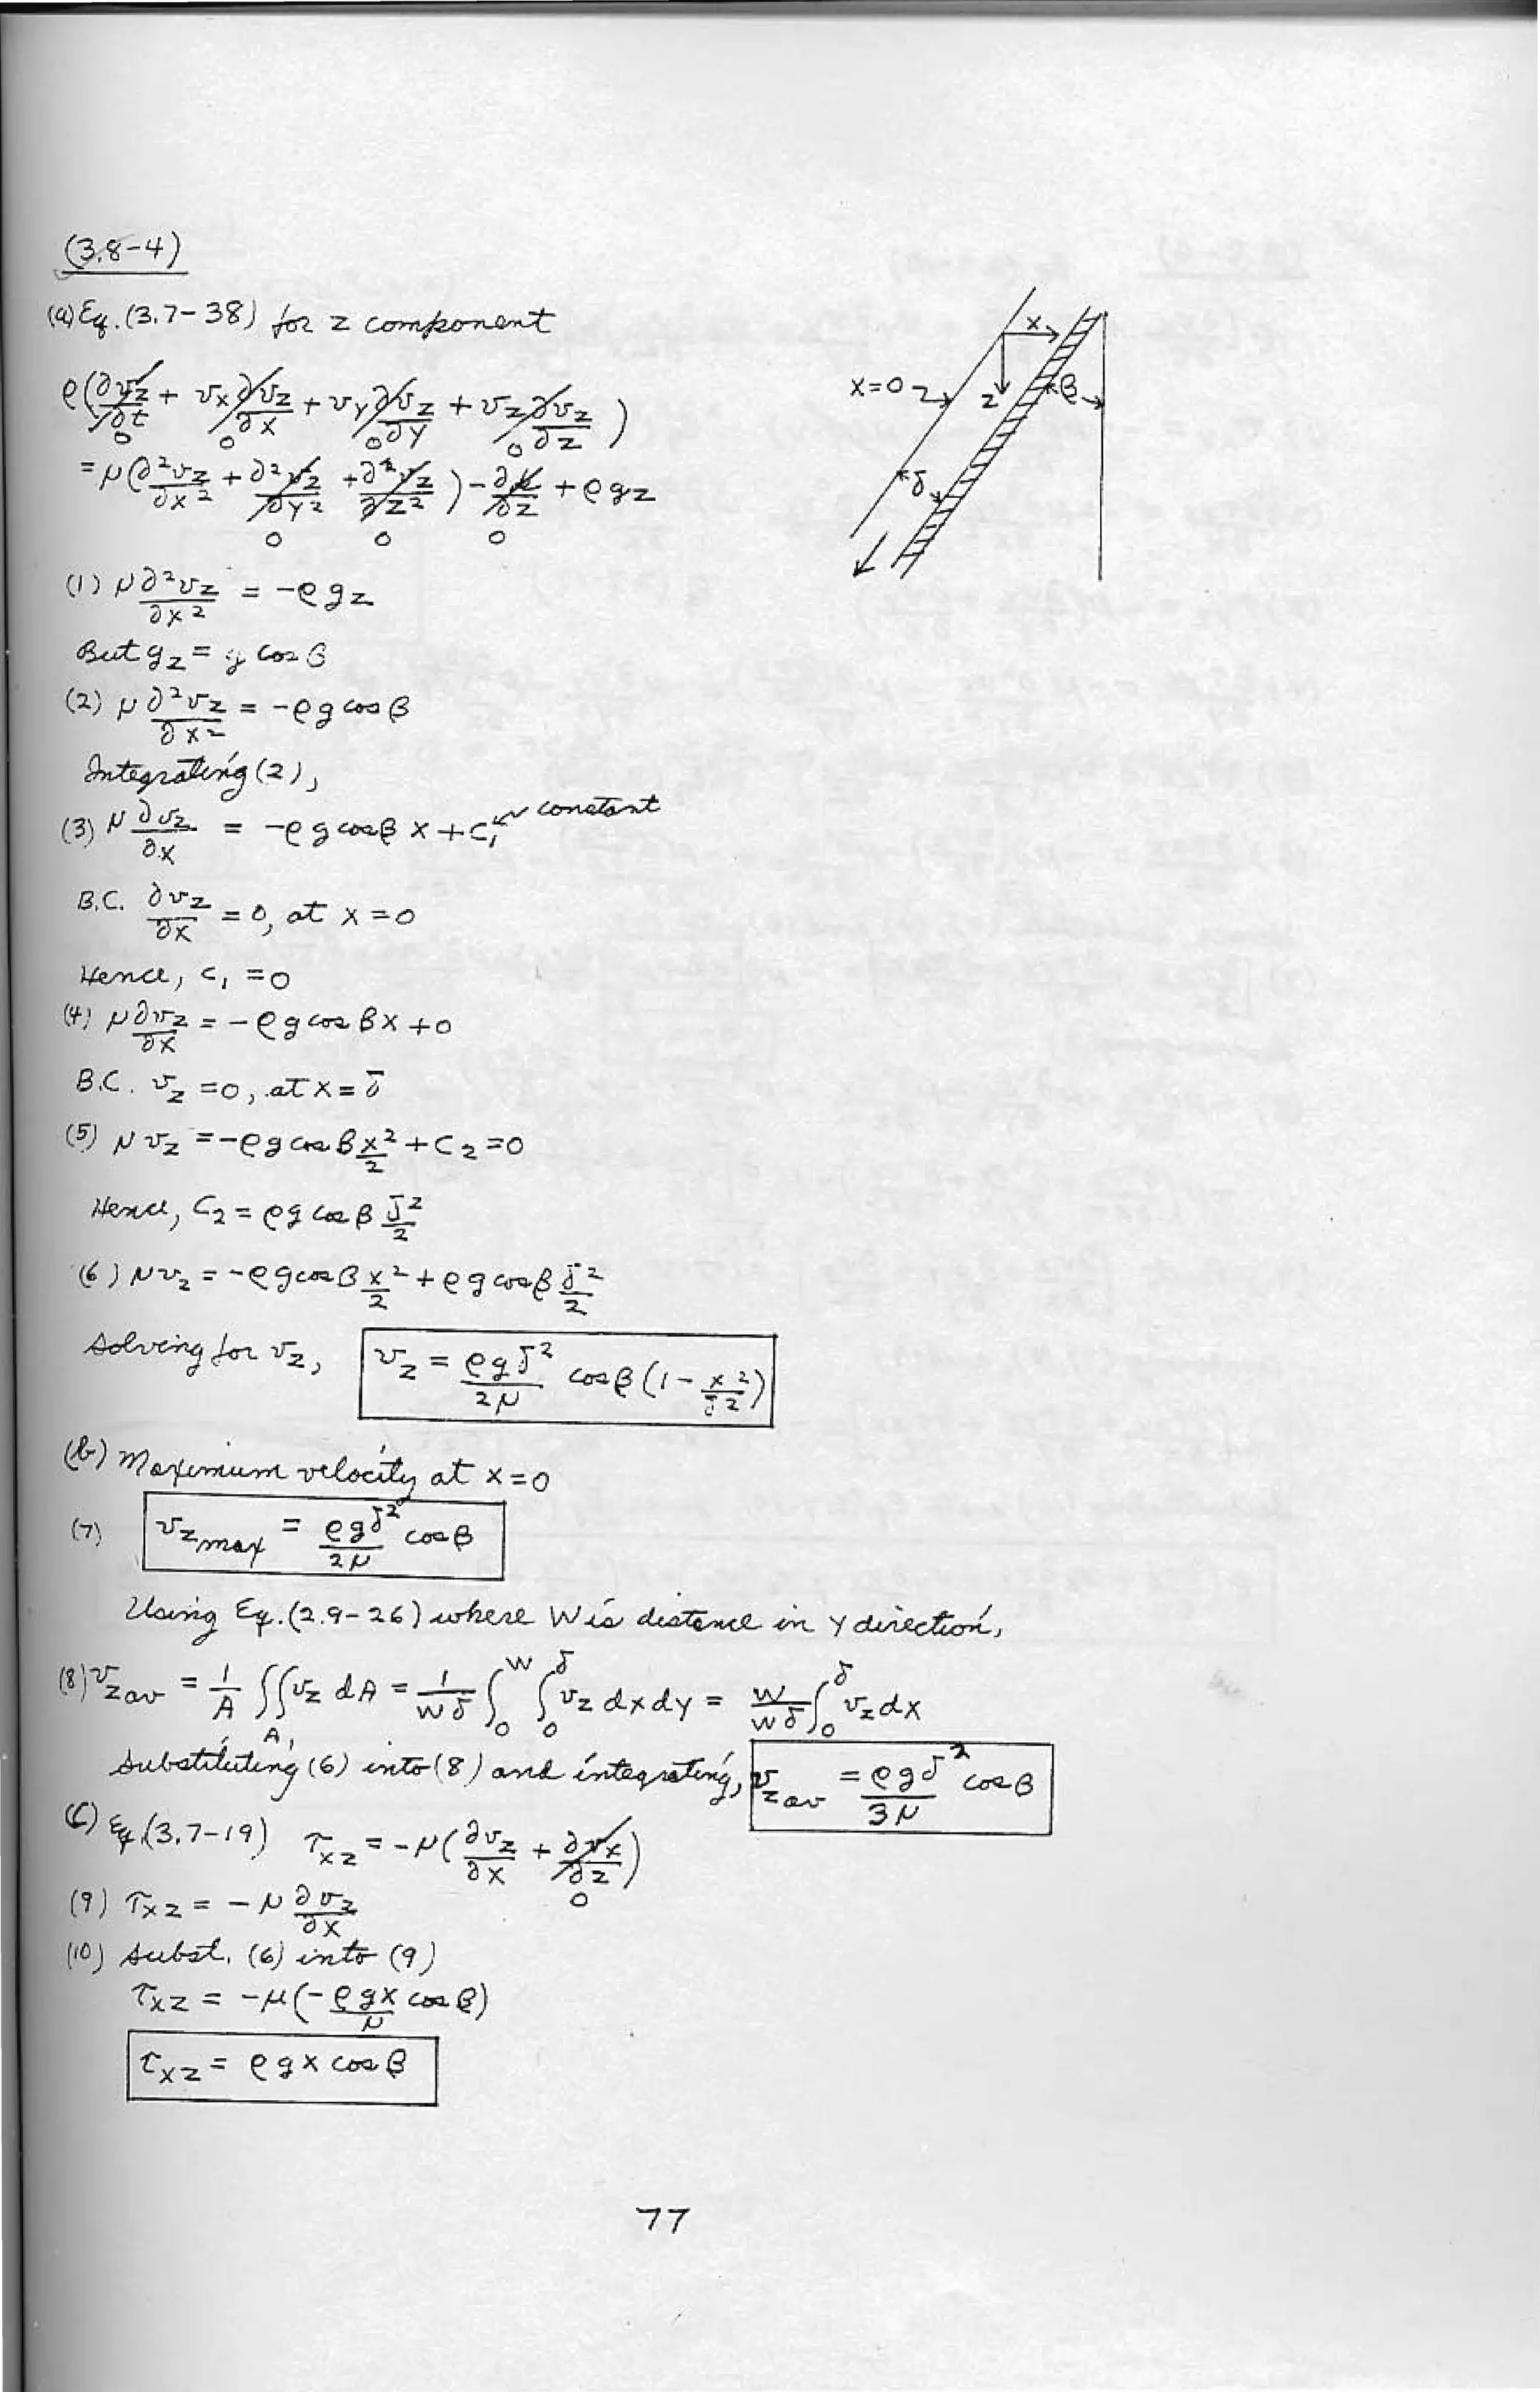 (3.8-4)
(a) Eq. (3.7-38) for z component
ρ(∂vz/∂t + vx ∂vz/∂x + vy ∂vz/∂y + vz ∂vz/∂z)
0 0 0 0
= μ(∂²vz/∂x² + ∂²vz/∂y² + ∂²vz/∂z²) - ∂p/∂z + ρgz
0 0 0
x
x=0
z
β
δ
(1) μ ∂²vz/∂x² = -ρgz
But gz = g cos β
(2) μ ∂²vz/∂x² = -ρg cos β
Integrating (2),
(3) μ ∂vz/∂x = -ρg cos β x + C₁ constant
B.C. ∂vz/∂x = 0, at x = 0
Hence, C₁ = 0
(4) μ ∂vz/∂x = -ρg cos β x + 0
B.C. vz = 0, at x = δ
(5) μ vz = -ρg cos β x²/2 + C₂ = 0
Hence, C₂ = ρg cos β δ²/2
(6) μ vz = -ρg cos β x²/2 + ρg cos β δ²/2
Solving for vz, vz = ρgδ²/2μ cos β (1 - x²/δ²)
(b) Maximum velocity at x = 0
(7) vz max = ρgδ²/2μ cos β
Using Eq. (2.9-26) where W is distance in y direction,
(8) vz av = 1/A ∬_A vz dA = 1/Wδ ∫₀^W ∫₀^δ vz dx dy = W/Wδ ∫₀^δ vz dx
Substituting (6) into (8) and integrating, vz av = ρgδ²/3μ cos β
(c) Eq. (3.7-19) τxz = -μ(∂vz/∂x + ∂vx/∂z)
0
(9) τxz = -μ ∂vz/∂x
(10) Subst. (6) into (9)
τxz = -μ(-ρgx/μ cos β)
τxz = ρgx cos β
77